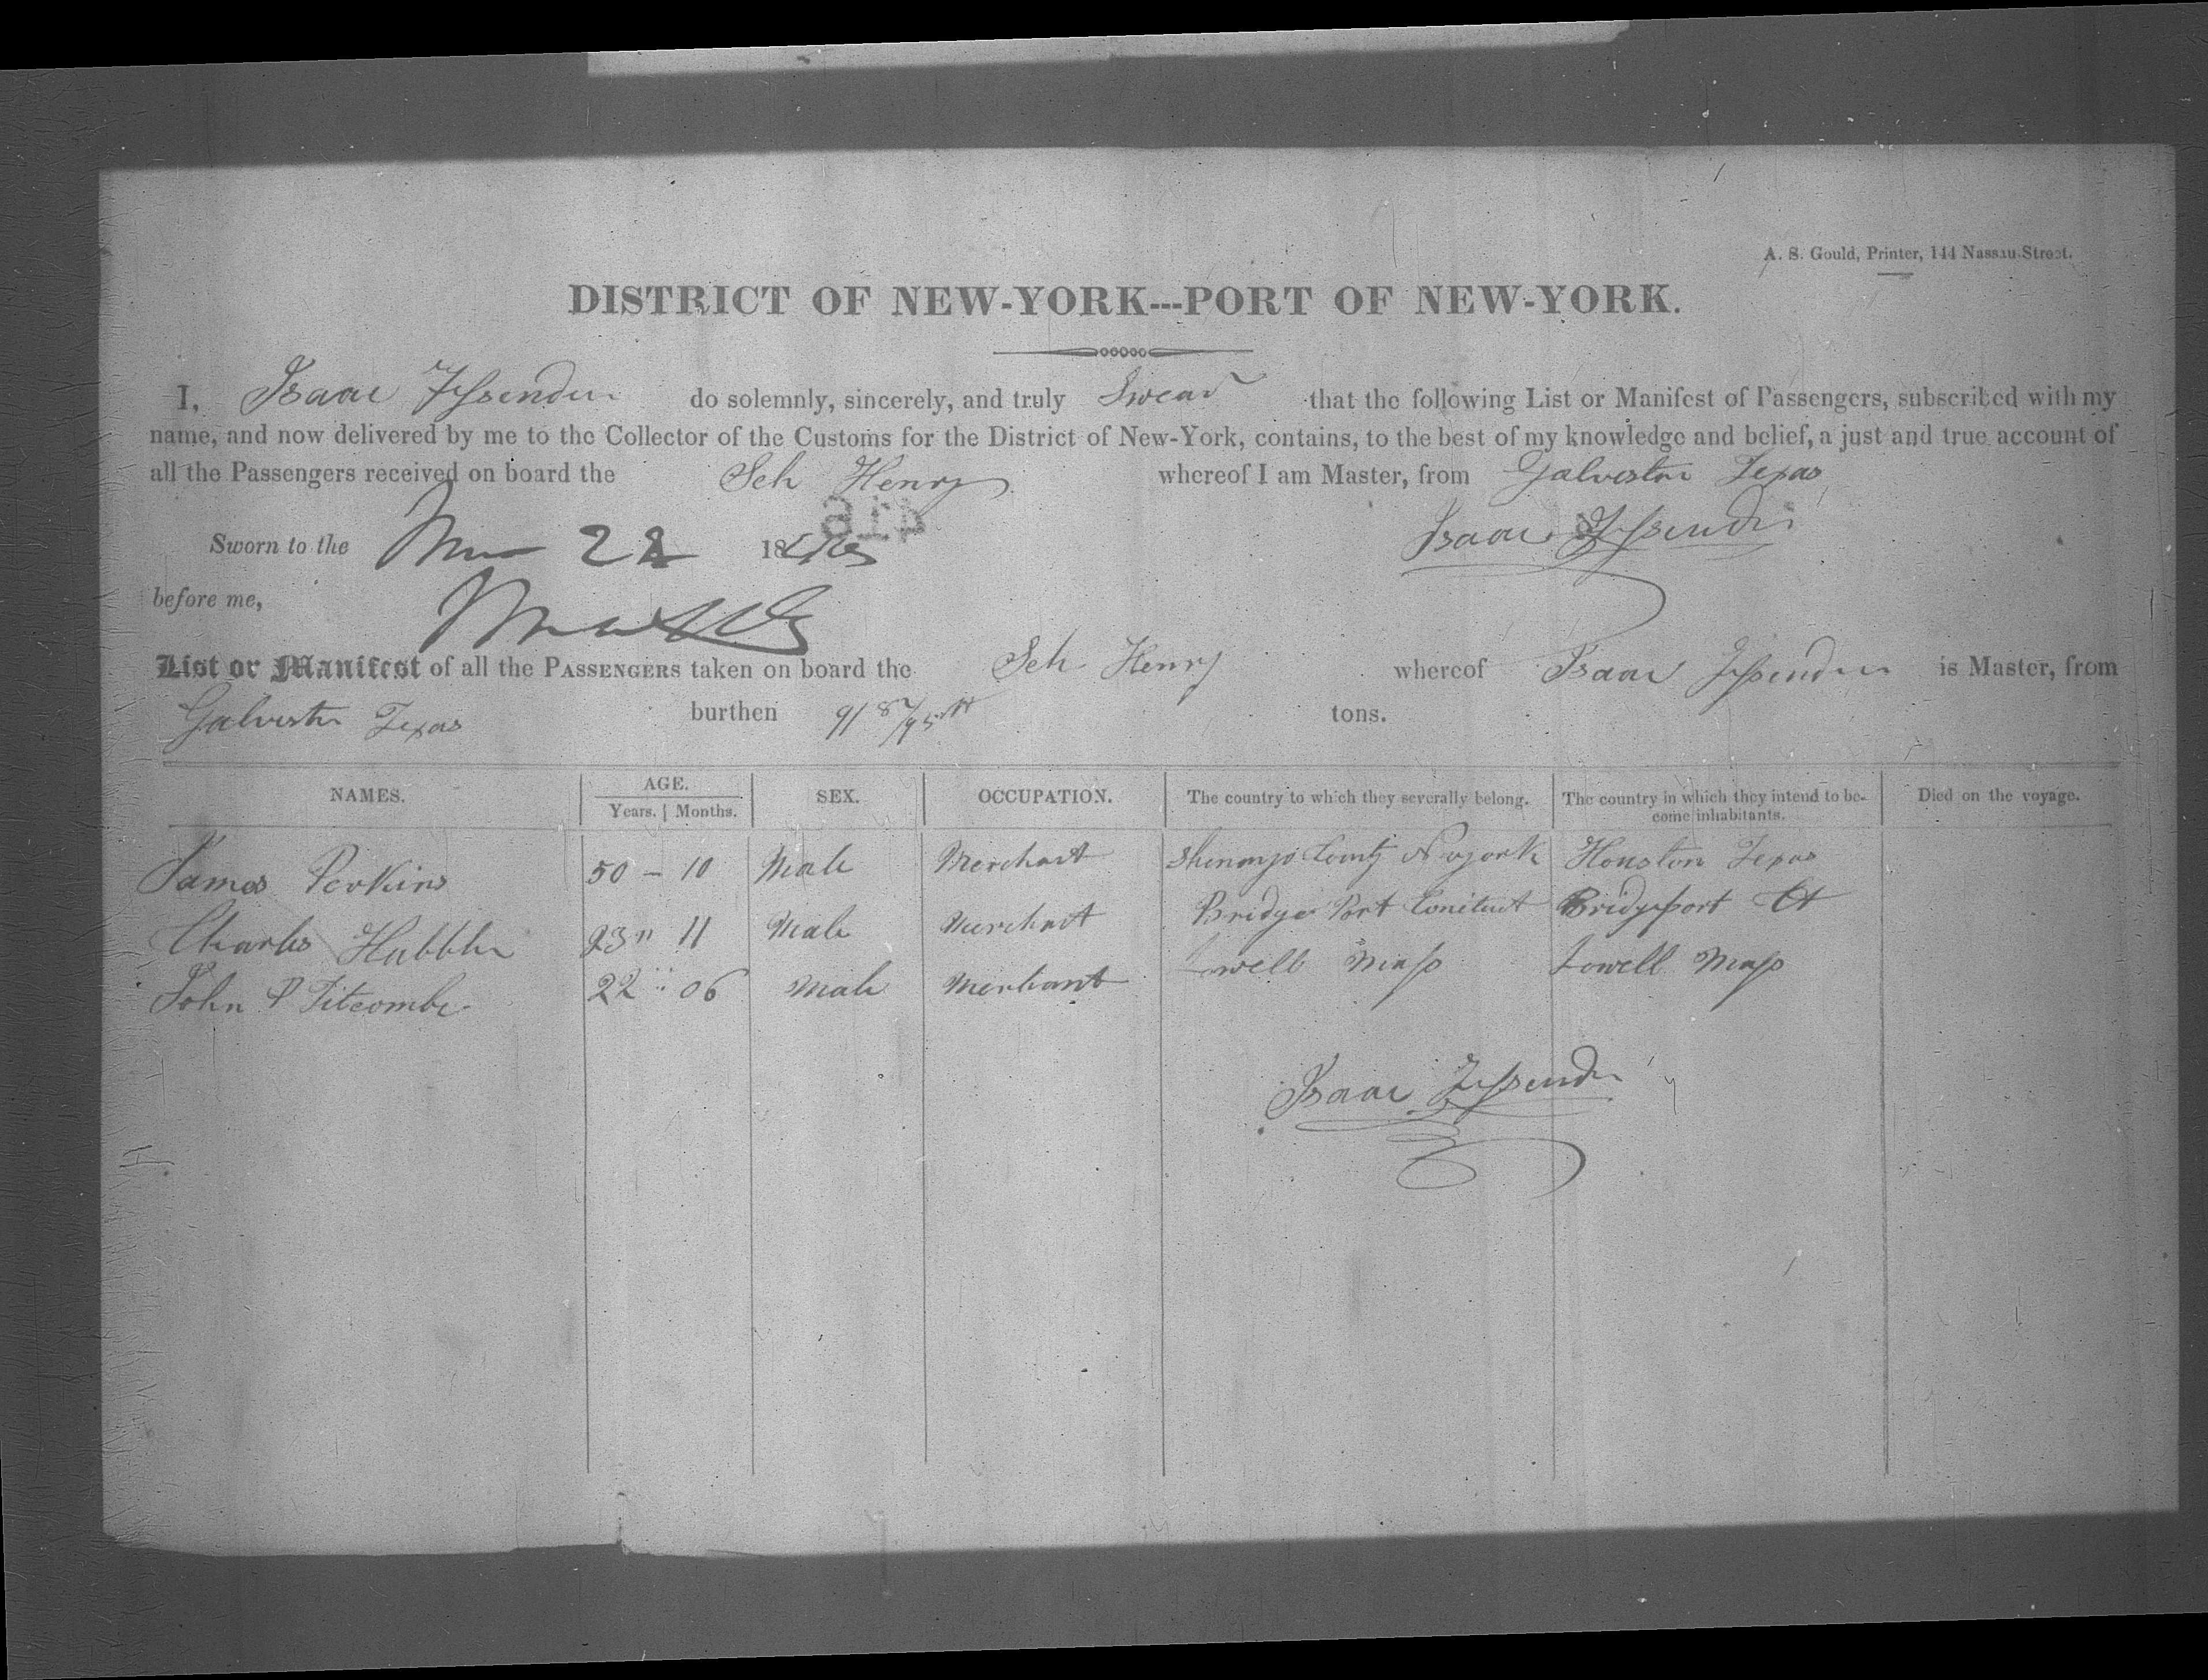 A. S. Gould, Printer, 144 Nassau-Street.
DISTRICT OF NEW-YORK---PORT OF NEW-YORK.
I, Isaac Jessenden do solemnly, sincerely, and truly Swear that the following List or Manifest of Passengers, subscribed with my
name, and now delivered by me to the Collector of the Customs for the District of New-York, contains, to the best of my knowledge and belief, a just and true account of
all the Passengers received on board the Sch Henry whereof I am Master, from Galveston Texas
416
Sworn to the 22 18 Isaac Jessenden
before me,
List or Manifest of all the PASSENGERS taken on board the Sch Henry whereof Isaac Jessenden is Master, from
Galveston Texas burthen 91 87/95 tons.
NAMES. AGE. SEX. OCCUPATION. The country to which they severally belong. The country in which they intend to be- Died on the voyage.
Years. Months. come inhabitants.
James Perkins 50 - 10 Male Merchant Shenango County N york Houston Texas
Charles Hubble 23 " 11 Male Merchant Bridge Port Conituct Bridgeport Ct
John P Titcombe 22 " 06 Male Merchant Lowell Mass Lowell Mass
Isaac Jessenden